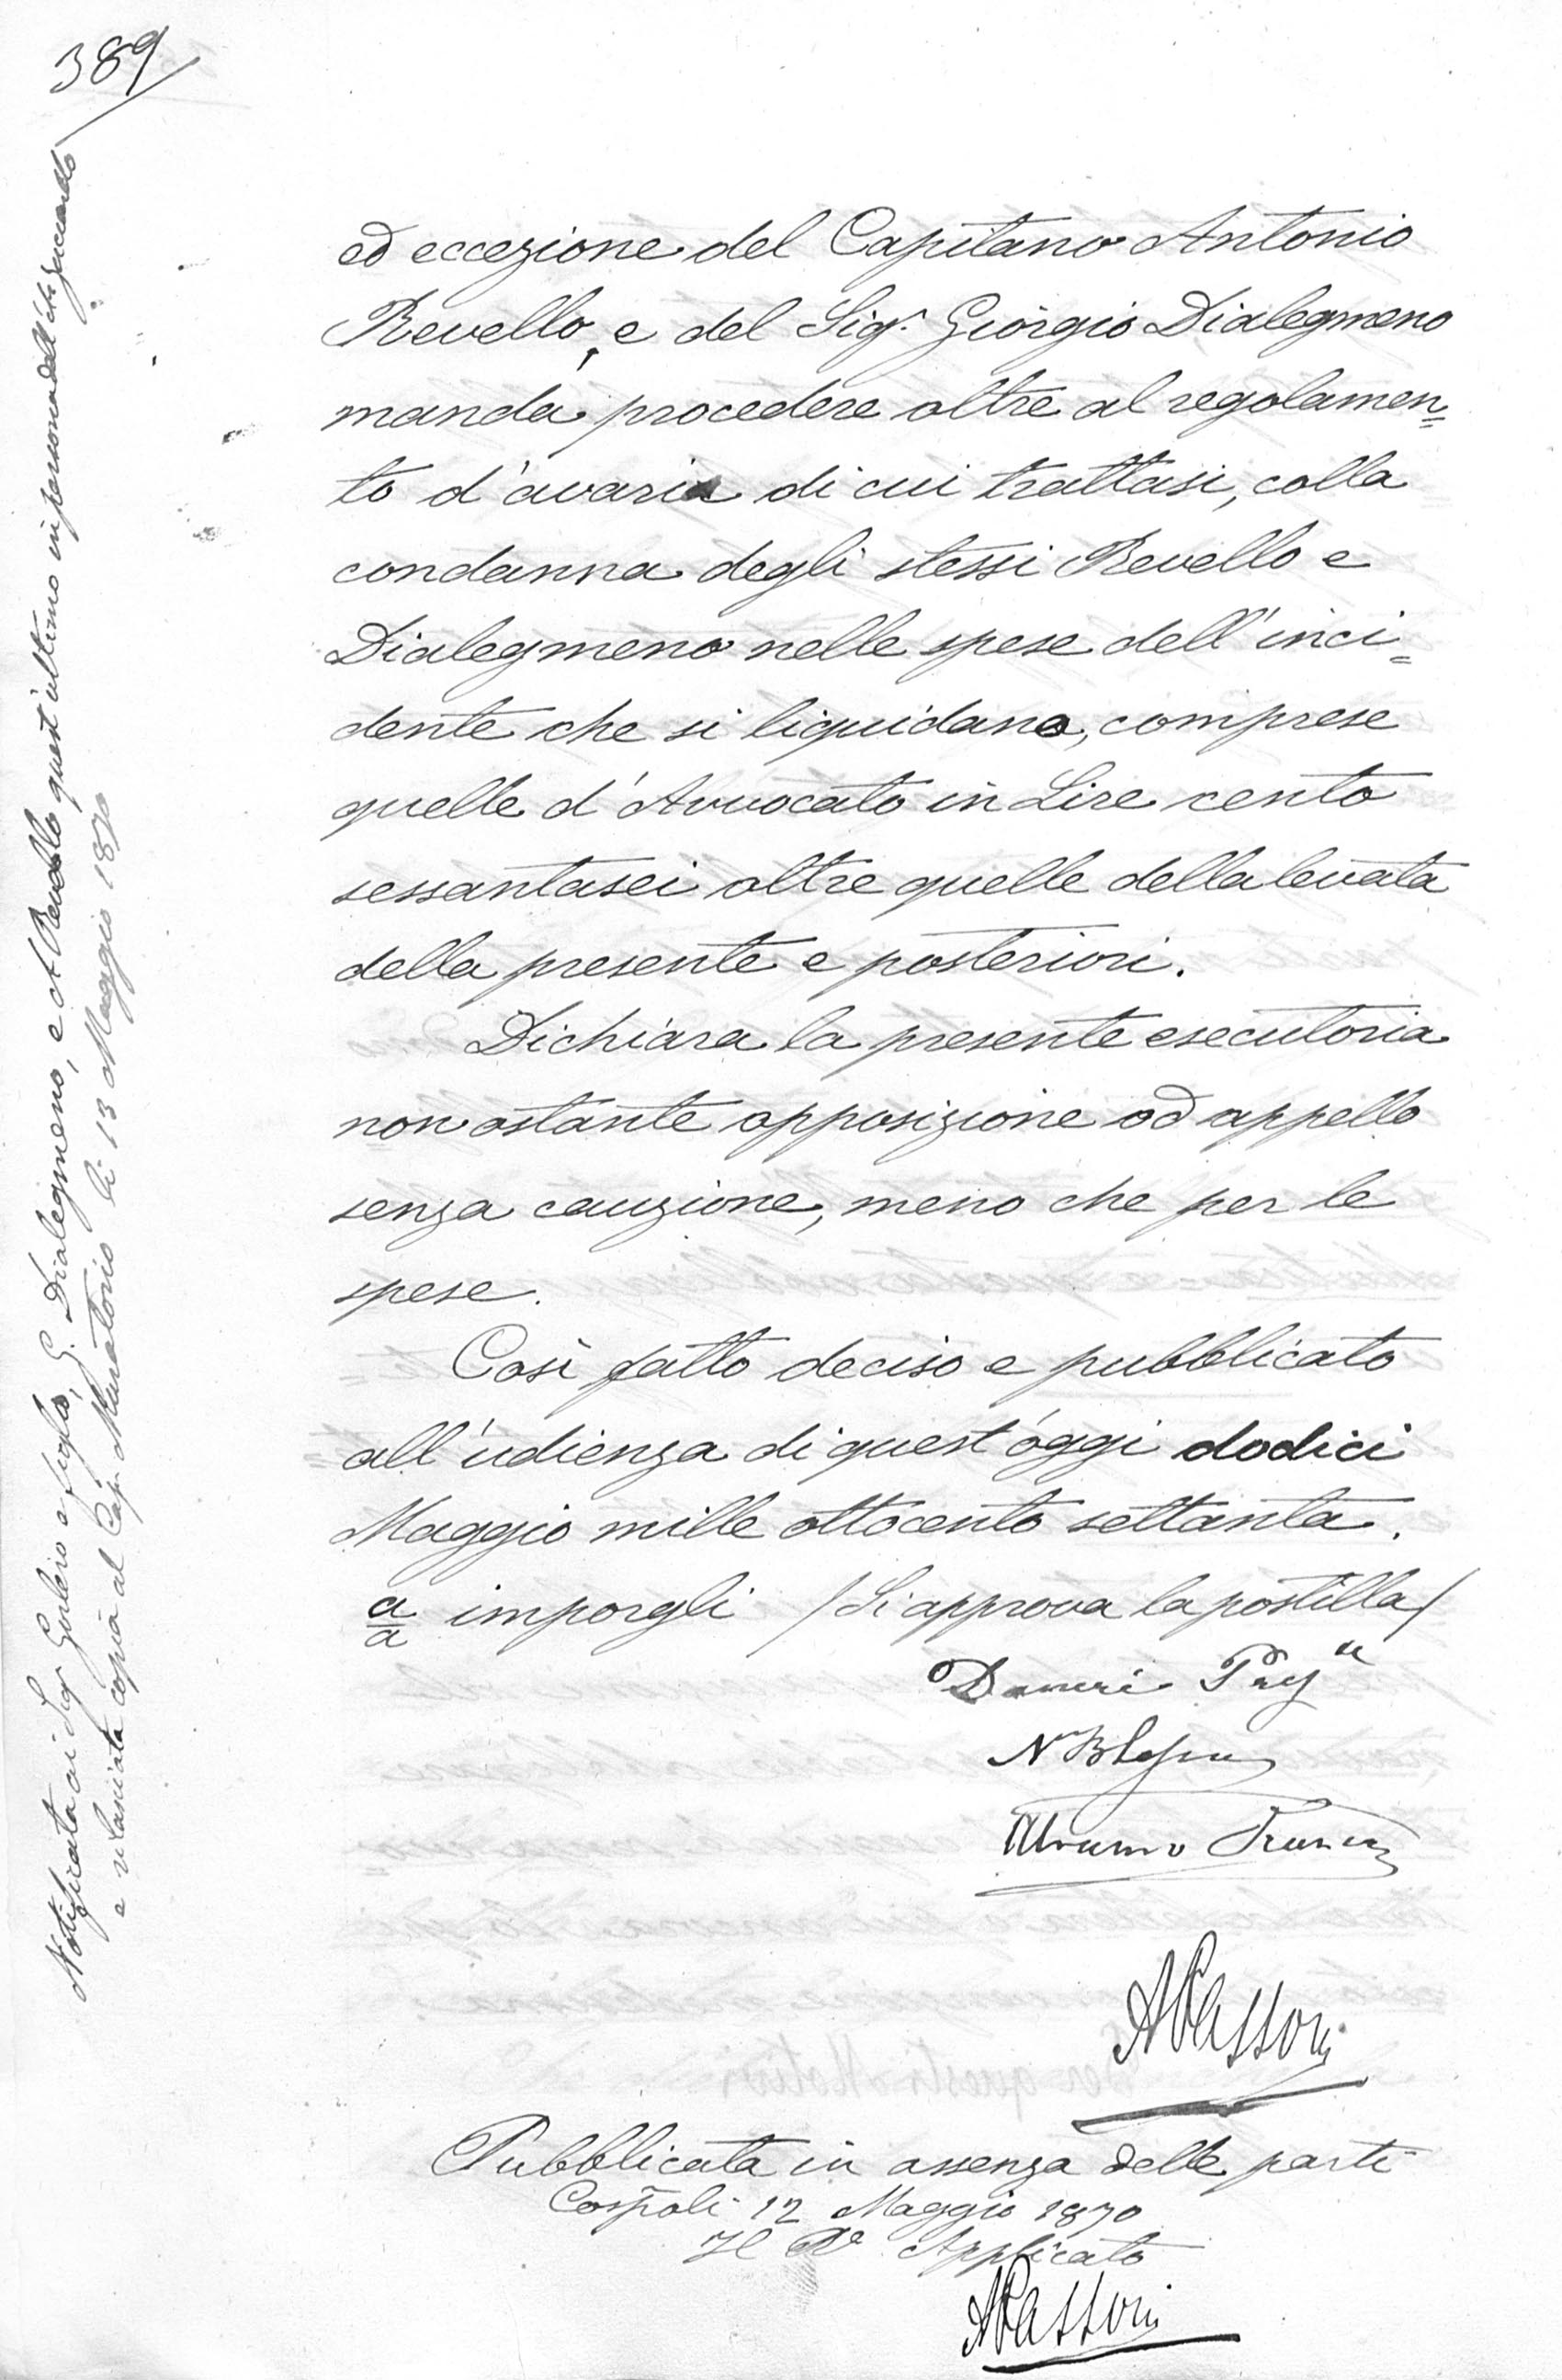 389
ed eccezione del Capitano Antonio
Revello, e del Sig.r Giorgio Dialegmeno
manda procedere oltre al regolamen=
to d'avaria di cui trattasi, colla
condanna degli stessi Revello e
Dialegmeno nelle spese dell'inci=
dente che si liquidano, comprese
quelle d'Avvocato in Lire cento
sessantasei oltre quelle della levata
della presente e posteriori.
Dichiara la presente esecutoria
non ostante opposizione od appello
senza cauzione, meno che per le
spese.
Così fatto deciso e pubblicato
all'udienza di quest'oggi dodici
Maggio mille ottocento settanta.
a/a imporgli /Si approva la postilla/
APassoni
Pubblicata in assenza delle parti
Cospoli 12 Maggio 1870
Il R.o Applicato
APassoni
Notificata ai Sigr Gorlero e figlio, G. Dialegmeno, e A Revello quest'ultimo in persona dell'
e rilasciata copia al Cap. Muratorio li 13 Maggio 1870